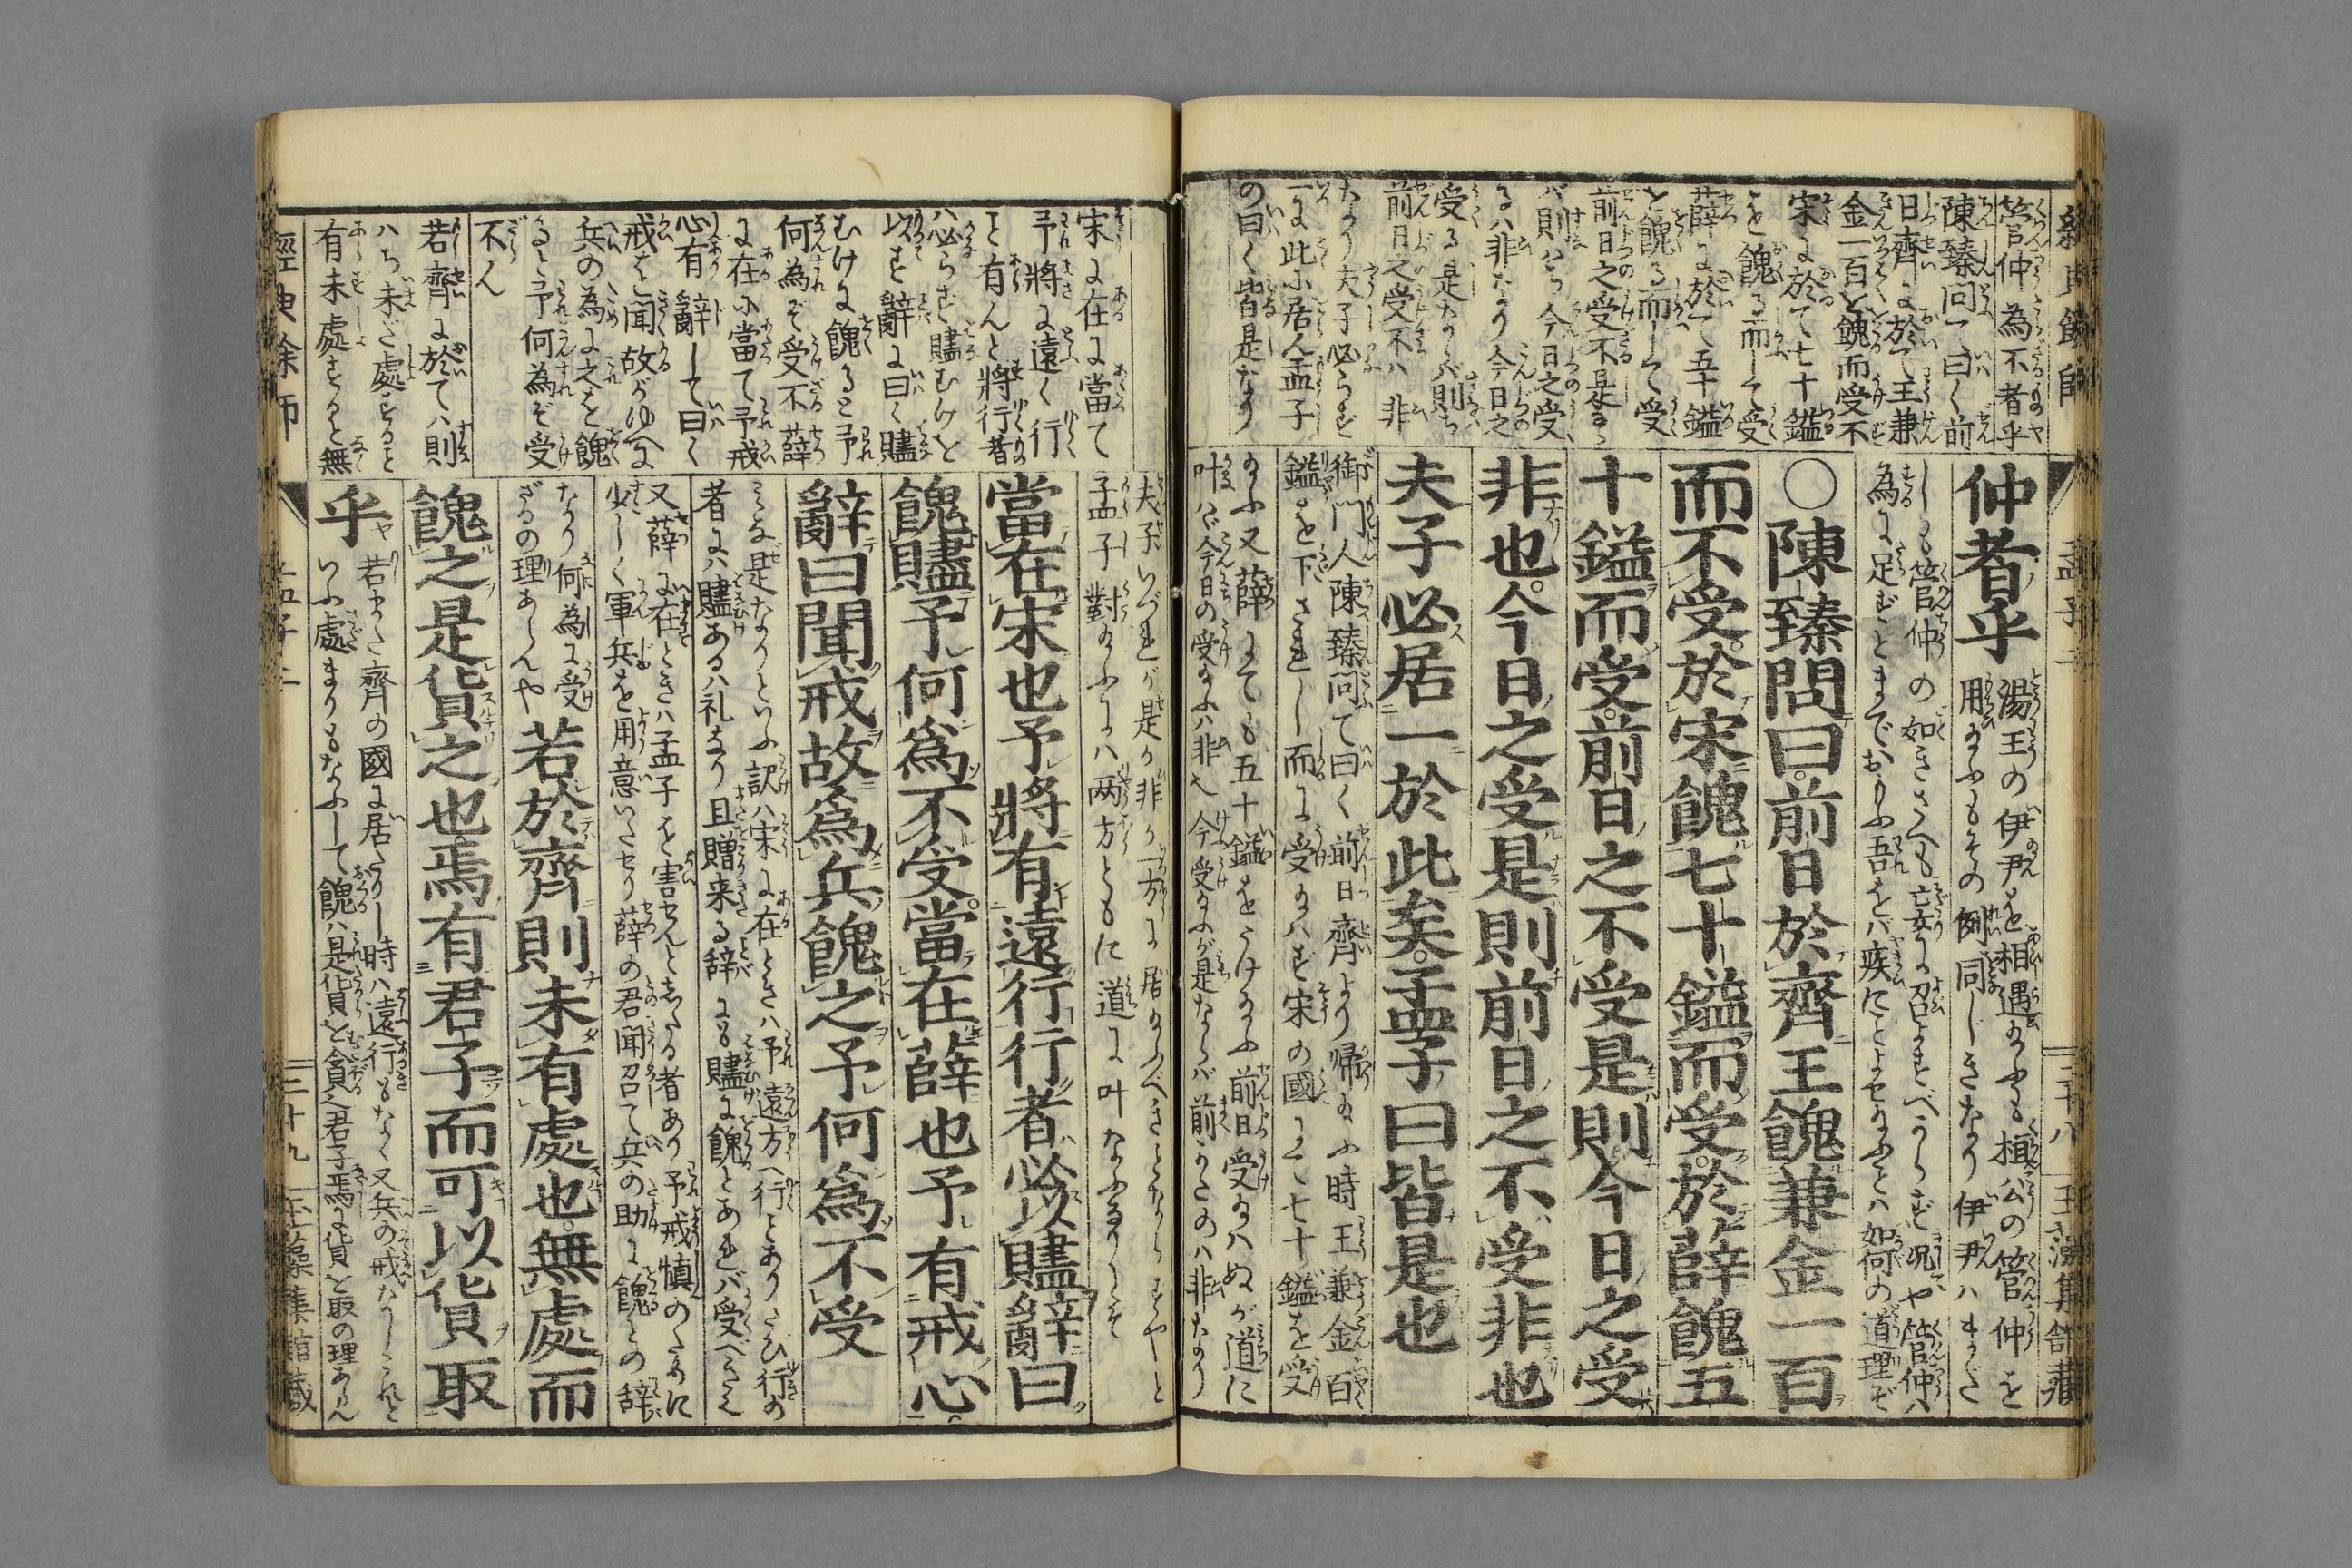 經典餘師 孟子二 三十八
管仲為不者乎
陳臻問て曰く前
日齊に於て王兼
金一百を餽而受不
宋に於て七十鎰
を餽る而して受
薛に於て五十鎰
を餽る而して受
前日之受不是ならバ
則ち今日之受
るハ非なり今日之
受る是ならバ則ち
前日之受不ハ非
なり夫子必らず
一に此に居ん孟子
の曰く皆是なり
仲者乎
湯王の伊尹を相遇玉ふも桓公の管仲を
用玉ふもその例同じきなり伊尹ハまだ
しも管仲の如きさへも妄に召よすべからず况や管仲ハ
為に足ずとまでおもふ吾をバ疾にことよせ玉ふとハ如何の道理ぞ
○陳臻問曰前日於齊王餽兼金一百
而不受於宋餽七十鎰而受於薛餽五
十鎰而受前日之不受是則今日之受
非也今日之受是則前日之不受非也
夫子必居一於此矣孟子曰皆是也
御門人陳臻問て曰く前日齊より帰玉ふ時王兼金百
鎰を下されし而に受玉ハず宋の國にて七十鎰を受
玉ふ又薛にても五十鎰をうけ玉ふ前日受玉ハぬが道に
叶ハヾ今日の受玉ふハ非也今受玉ふが是ならバ前かたのハ非なり
宋に在に當て
予將に遠く行
と有んと將行者
ハ必らず贐むけを
以す辭に曰く贐
むけに餽ると予
何為ぞ受不薛
に在に當て予戒
心有辭して曰く
戒を聞故がゆへに
兵の為に之を餽
ると予何為ぞ受
不ん
若齊に於てハ則
ハち未だ處すること
有未處すると無
夫子いづれが是か非か一方に居玉ふべきことならずやと
孟子對玉ふにハ両方ともに道に叶なふなりとぞ
當在宋也予將有遠行行者必以贐辭曰
餽贐予何爲不受當在薛也予有戒心
辭曰聞戒故爲兵餽之予何爲不受
みな是なりといふ訳ハ宋に在ときハ予遠方へ行とありたび行の
者にハ贐あるハ礼なり且贈来る辞にも贐に餽とあれバ受べきに
又薛に在ときハ孟子を害せんとする者あり予戒慎のために
少しく軍兵を用意いたせり薛の君聞召て兵の助に餽との辞
なり何為に受
ざるの理あらんや
若於齊則未有處也無處而
餽之是貨之也焉有君子而可以貨取
乎
若また齊の國に居たりし時ハ遠行もなく又兵の戒なしこれと
いふ處まりもなふして餽ハ是貨を貪也君子焉に貨を取の理あらん
經典余師 孟子二 三十九 玉藻集館藏